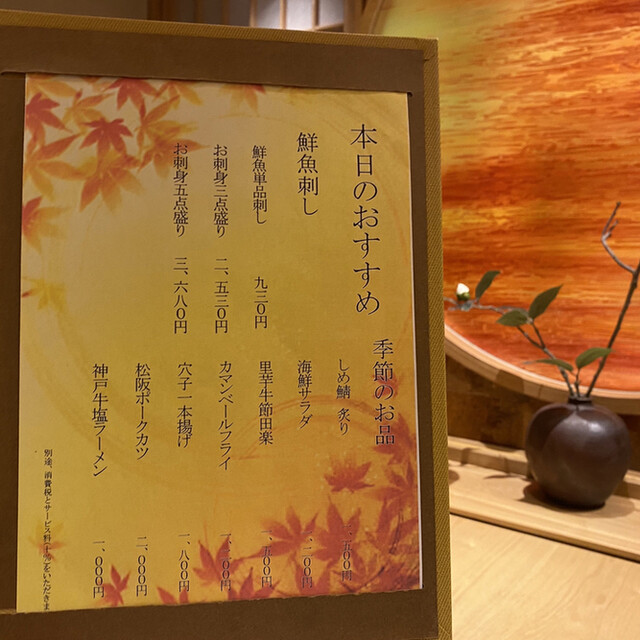 本日のおすすめ
鮮魚刺し
鮮魚単品刺し 九三〇円
お刺身三点盛り 二、五三〇円
お刺身五点盛り 三、六八〇円
季節のお品
しめ鯖 炙り 五〇〇円
海鮮サラダ 二〇〇円
里芋牛節田楽 五〇〇円
カマンベールフライ 〇〇円
穴子一本揚げ 一、八〇〇円
松阪ポークカツ 二、〇〇〇円
神戸牛塩ラーメン 一、〇〇〇円
別途、消費税とサービス料 をいただきま